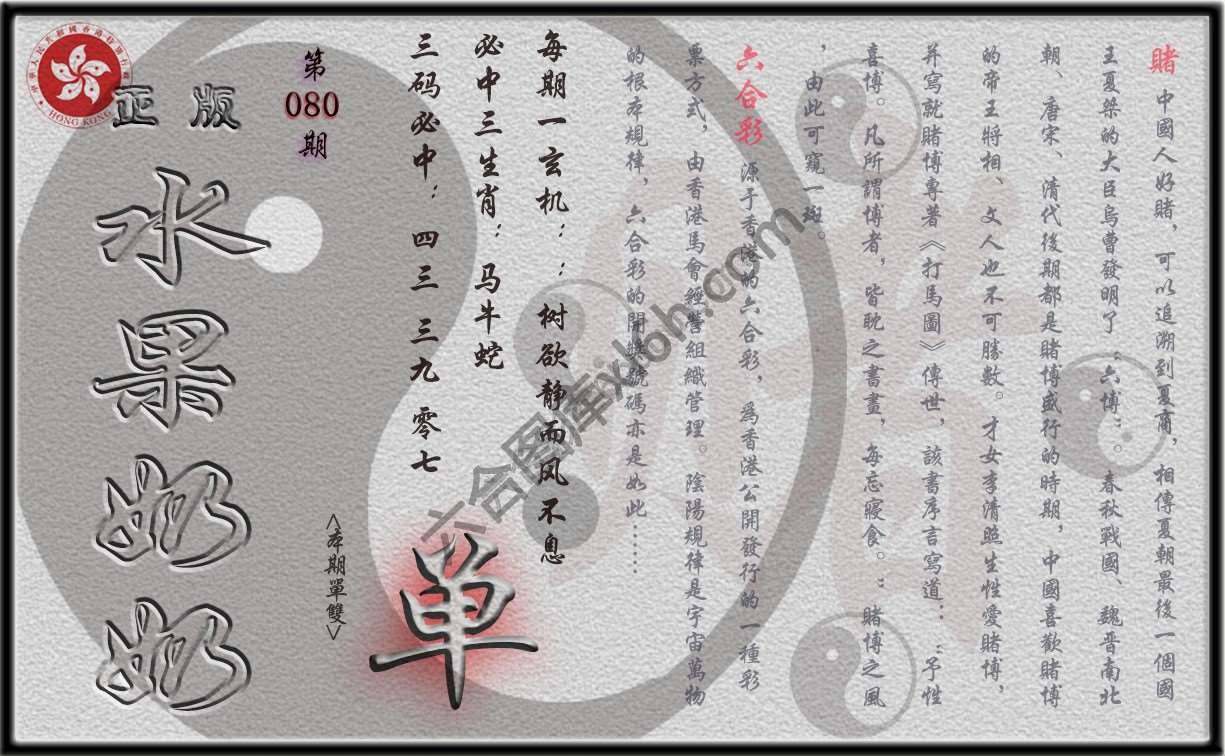 賭 中國人好賭，可以追溯到夏商，相傳夏朝最後一個國
王夏桀的大臣烏曹發明了“六博”。春秋戰國、魏晋南北
朝、唐宋、清代後期都是賭博盛行的時期，中國喜歡賭博
的帝王將相、文人也不可勝數。才女李清照生性愛賭博，
并寫就賭博專著《打馬圖》傳世，該書序言寫道：“予性
喜博。凡所謂博者，皆耽之書畫，每忘寢食。”賭博之風
，由此可窺一斑。
六合彩 源于香港的六合彩，爲香港公開發行的一種彩
票方式，由香港馬會經營組織管理。陰陽規律是宇宙萬物
的根本規律，六合彩的開獎號碼亦是如此……
每期一玄机：：树欲静而风不息
必中三生肖：马牛蛇
三码必中：四三 三九 零七
<本期單雙>
单
第
080
期
正版
水果奶奶
HONG KONG
六合图库xloh.com